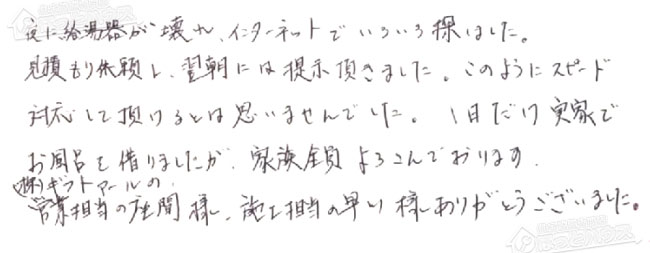 夜に給湯器が壊れ、インターネットでいろいろ探しました。
見積もり依頼し、翌朝には提示頂きました。このようにスピード
対応して頂けるとは思いませんでした。1日だけ実家で
お風呂を借りましたが、家族全員よろこんでおります。
(株)ギフトマールの
営業担当の座間様、施工担当の早い様ありがとうございました。